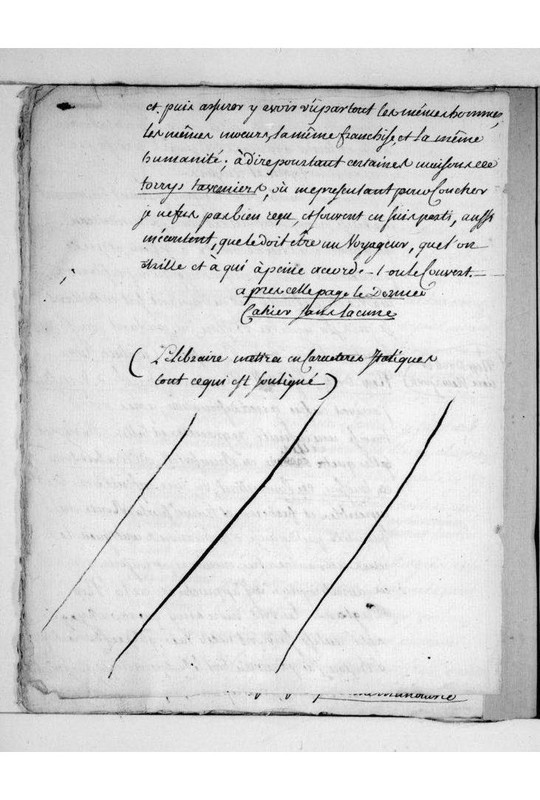 et puis assurer y avoir vu partout les mêmes hommes,
les mêmes moeurs, la même franchise, et la même
humanité; à dire pourtant certaines maisons de
torrys taverniers, où me presentant pour Coucher
je ne fus pas bien reçu, et souvent en suis parti, aussi
mécontent, que le doit être un Voyageur, que l'on
étrille et à qui à peine accorde-t'on le Couvert
après cette page le Dernier
Cahier sans lacune
(Le Libraire mettra en Caracteres Italiques
tout ce qui est souligné)